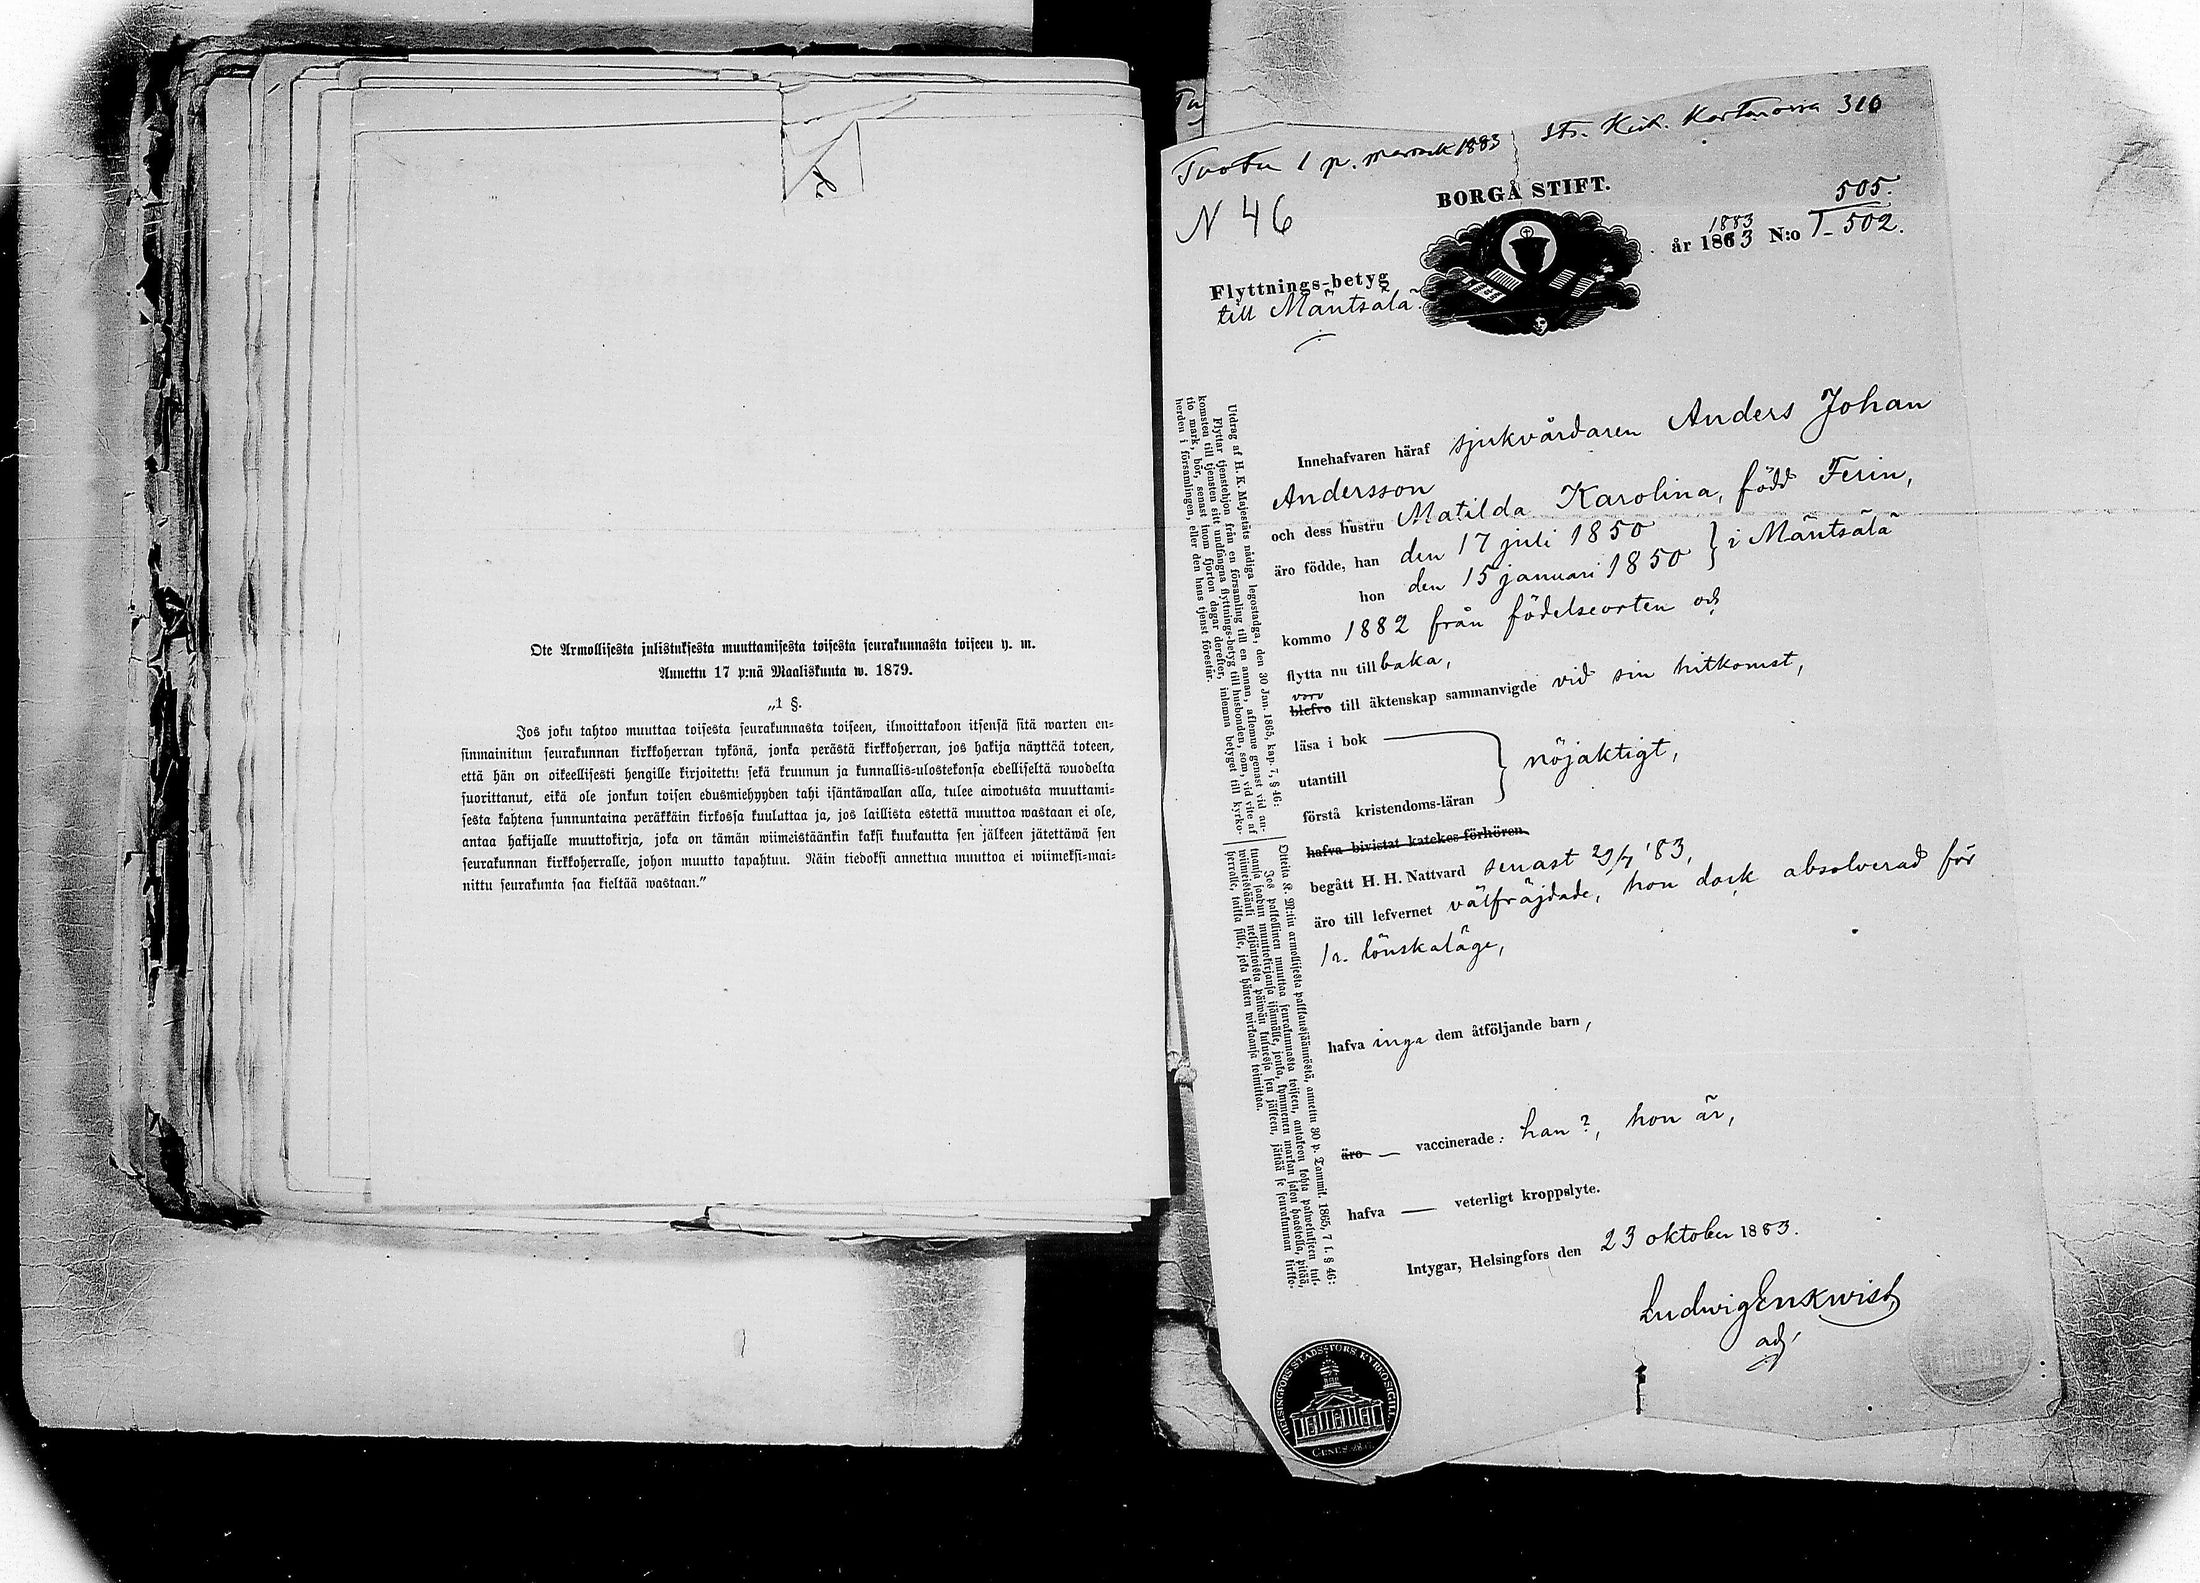 Ote Armollisesta julistuksesta muuttamisesta toisesta seurakunnasta toiseen y. m.
Annettu 17 p:nä Maaliskuuta w. 1879.
„1 §.
Jos joku tahtoo muuttaa toisesta seurakunnasta toiseen, ilmoittakoon itsensä sitä warten en=
sinmainitun seurakunnan kirkkoherran tykönä, jonka perästä kirkkoherran, jos hakija näyttää toteen,
että hän on oikeellisesti hengille kirjoitettu sekä kruunun ja kunnallis=ulostekonsa edelliseltä wuodelta
suorittanut, eikä ole jonkun toisen edusmiehyyden tahi isäntäwallan alla, tulee aiwotusta muuttami=
sesta kahtena sunnuntaina peräkkäin kirkossa kuuluttaa ja, jos laillista estettä muuttoa wastaan ei ole,
antaa hakijalle muuttokirja, joka on tämän wiimeistäänkin kaksi kuukautta sen jälkeen jätettäwä sen
seurakunnan kirkkoherralle, johon muutto tapahtuu. Näin tiedoksi annettua muuttoa ei wiimeksi=mai=
nittu seurakunta saa kieltää wastaan.”
Tuotu 1 p. 1883 310
N 46
BORGÅ STIFT.
505.
år 1883 N:o 502.
Flyttnings-betyg
till Mäntsälä.
Innehafvaren häraf sjukvårdaren Anders Johan
Andersson
och dess hustru Matilda Karolina, född Ferin,
äro födde, han den 17 juli 1850 } i Mäntsälä
hon den 15 januari 1850
kommo 1882 från födelseorten och
flytta nu till baka,
voro
blefvo till äktenskap sammanvigde vid sin hitkomst,
läsa i bok
utantill } nöjaktigt,
förstå kristendoms-läran
hafva bivistat katekes-förhören
begått H. H. Nattvard senast 29/7 '83,
äro till lefvernet välfräjdade, hon dock absolverad för
1 r. lönskaläge,
hafva inga dem åtföljande barn,
äro — vaccinerade: han?, hon är,
hafva — veterligt kroppslyte.
Intygar, Helsingfors den 23 oktober 1883.
Ludwig Enkwist,
adj.
Utdrag af H. K. Majestäts nådiga legostadga, den 30 Jan. 1865, kap. 7, § 46:
Flyttar tjenstehjon från en församling till en annan, aflemne genast vid an-
komsten till tjensten sitt undfångna flyttnings-betyg till husbonden, som, vid vite af
tio mark, bör, senast inom fjorton dagar derefter, inlemna betyget till kyrko-
herden i församlingen, eller den hans tjenst förestår.
Otteita K. M:tin armollisesta palkkaussäännöstä, annettu 30 p. Tammik. 1865, 7 l. § 46:
Jos palkollinen muuttaa seurakunnasta toiseen, antakoon kohta palwelukseen tul-
tuansa saadun muuttokirjansa isännälle, jonka, kymmenen markan sakon haastolla, pitää,
wiimeistäänki neljäntoista päiwän kuluessa sen jälkeen, jättää se seurakunnan kirkko-
herralle, taikka sille, joka hänen wirkaansa toimittaa.
HELSINGFORS STADS-FÖRS KYRKO SIGILL